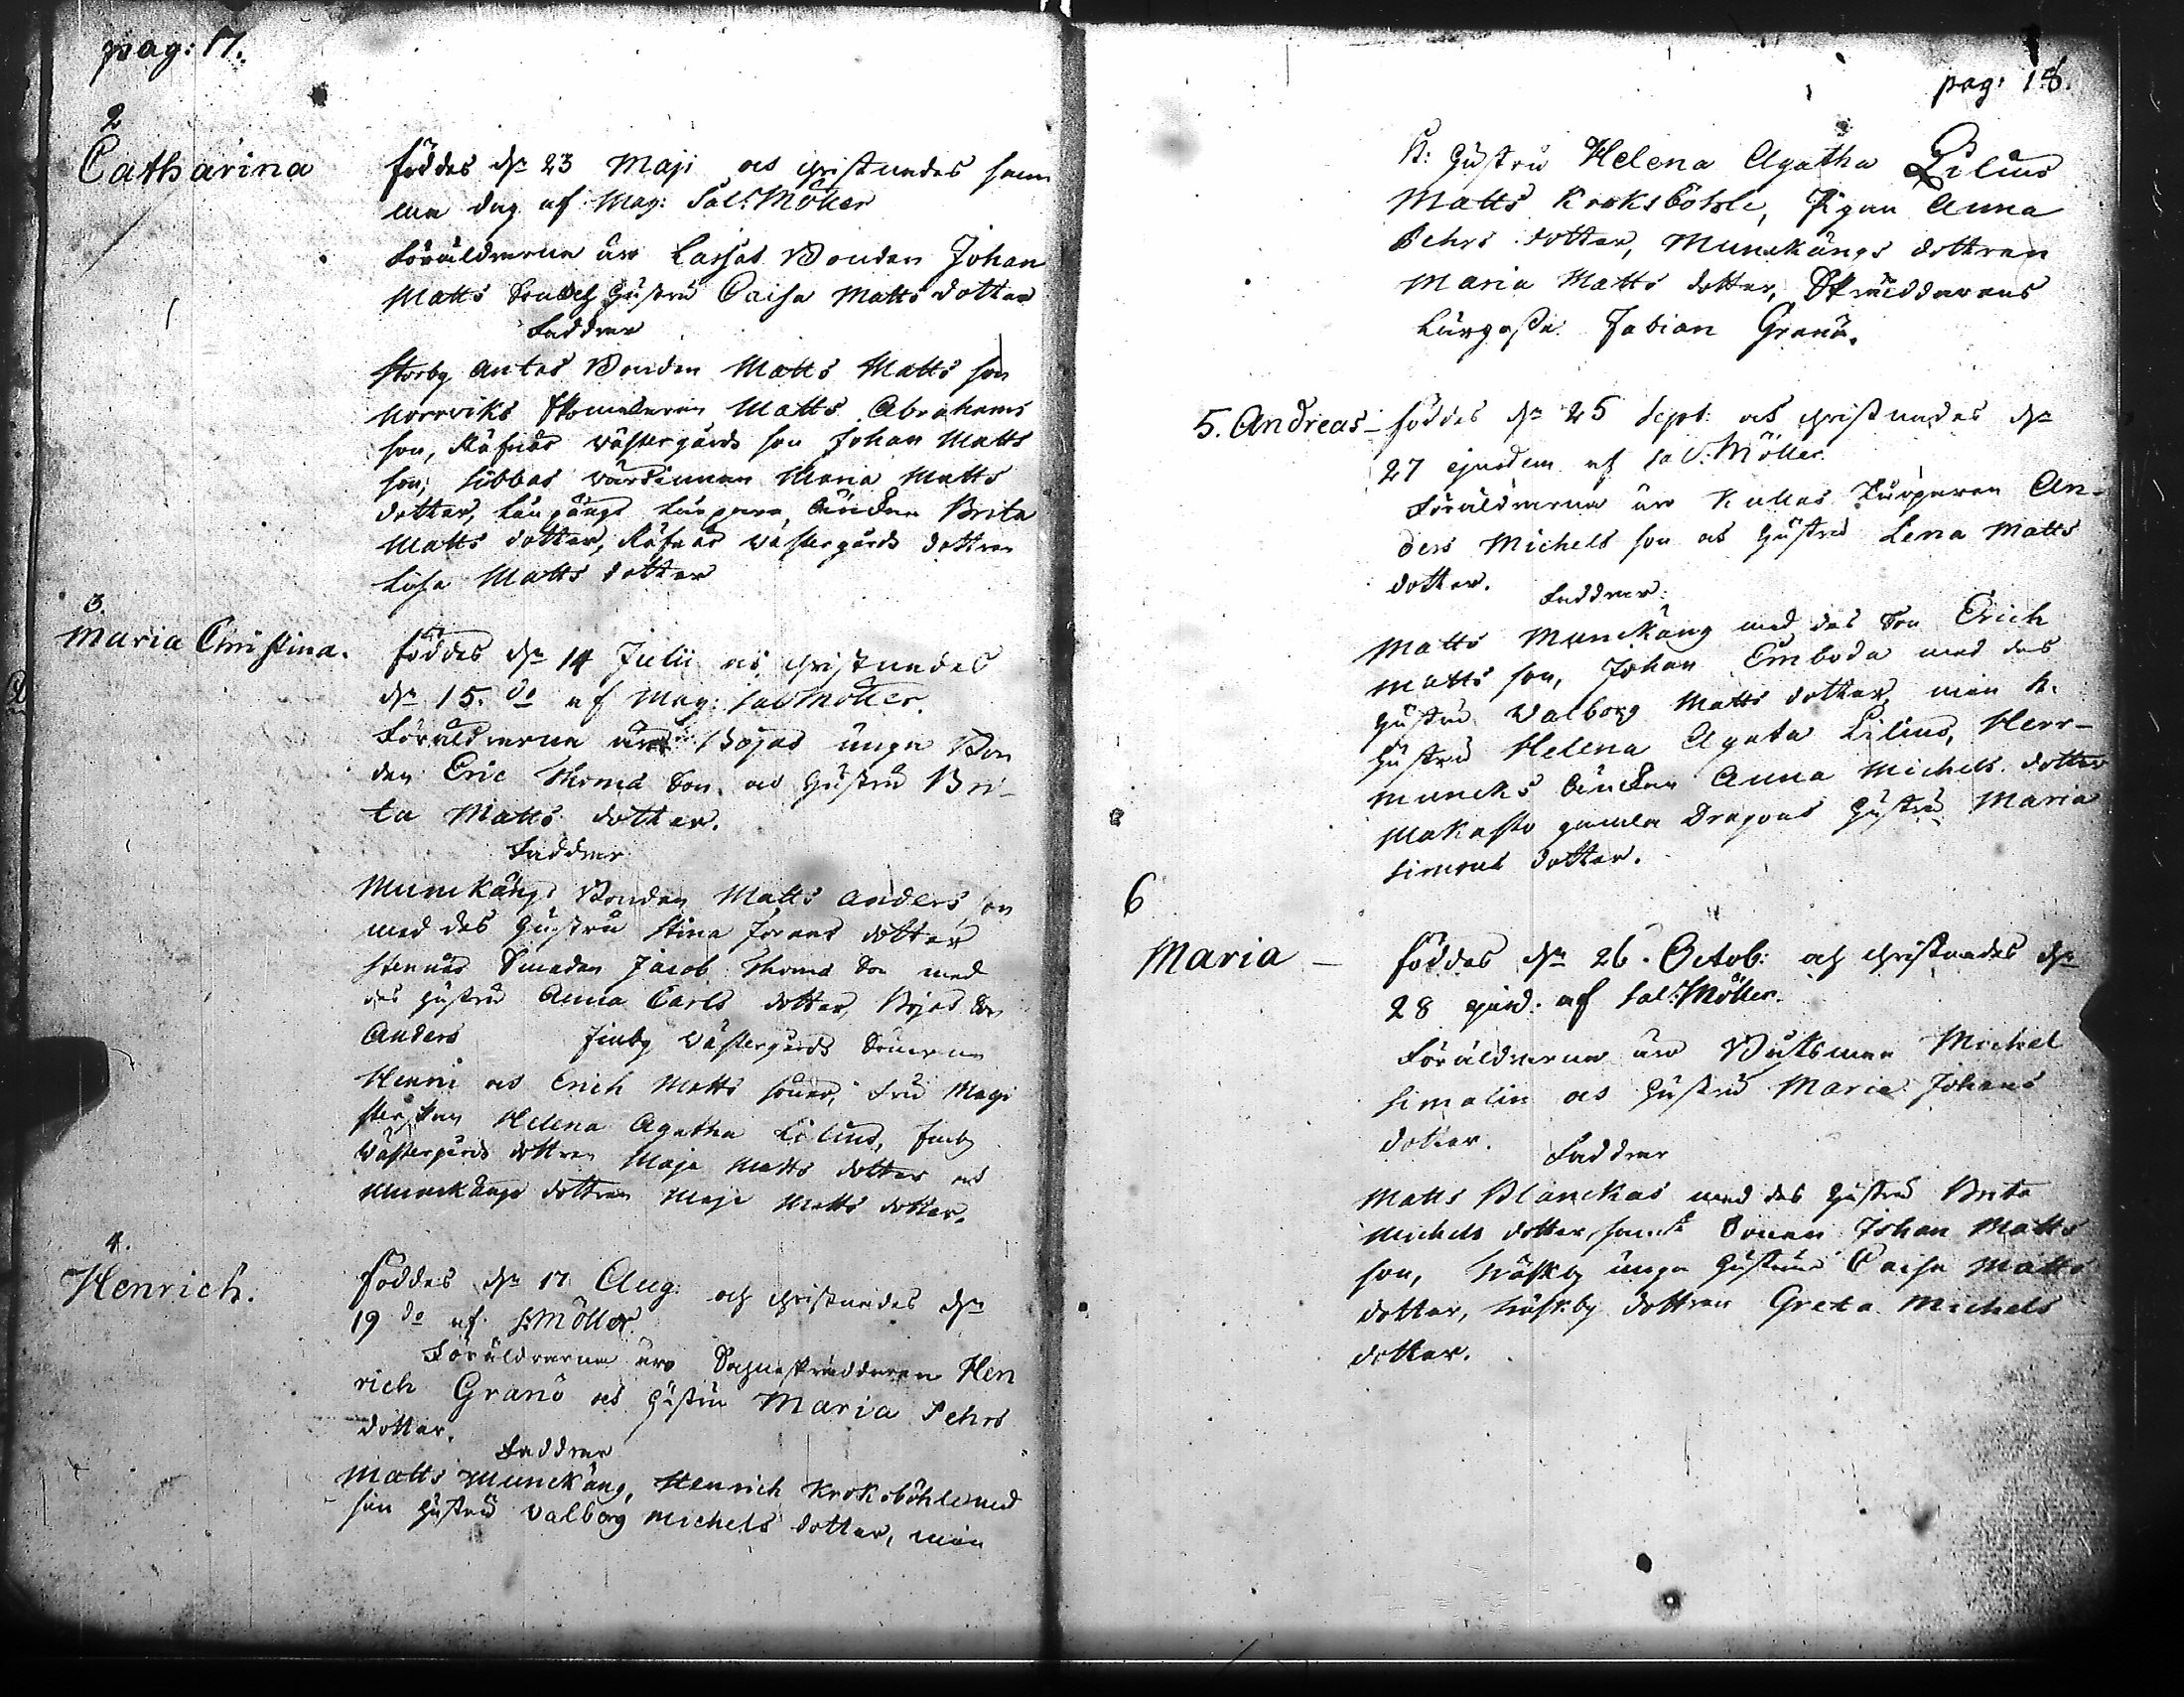 pag: 17.
2
Catharina
föddes d. 23 Maji och christnades sam
ma dag af Mag: Sal: Möller
Föräldrarna äro Lassas Bonden Johan
Matts Son och hustru Caisa Matts dotter
Faddrar
Storby Antas Bonden Matts Matts son
Norrviks Skomakaren Matts Abrahams
son, Räfnäs Wästergårds son Johan Matts
son, Sibbas Wärdinnan Maria Matts
dotter, änckan Brita
Matts dotter, Räfnäs Wästergårds dottren
Lisa Matts dotter
3.
Maria Christina.
föddes d. 14 Julii och christnades
d. 15. do af Mag: Sal Möller.
Föräldrarna äro Böjas unga Bon
den Eric Thomæ Son och hustru Bri-
ta Matts dotter.
Faddrar
Munckängs Bonden Matts Anders son
med des hustru Stina Jörans dotter
Stennäs Smeden Jacob Thomæ Son med
des hustru Anna Carls dotter, Böjas Son
Anders Finby Wästergårds Sönerne
Henric och Erich Matts söner, Fru Magi
sterskan Helena Agatha Lilius, Finby
Wästergårds dottren Maja Matts dotter och
Munckängs dottren Maja Matts dotter.
4.
Henrich.
föddes d. 17 Aug: och christnades d.
19 do af S: Möller.
Föräldrarna äro Sockneskräddaren Hen
rich Granö och hustru Maria Pehrs
dotter.
Faddrar
Matts Munckäng, Henrich Kroksböhle med
sin hustru Valborg Michels dotter, min
pag: 18.
K: hustru Helena Agatha Lilius
Matts Kroksböhle, Pigan Anna
Pehrs dotter, Munckängs dottren
Maria Matts dotter, Skräddarens
Lärgosse Fabian Granö.
5. Andreas - föddes d. 25 Sept: och christnades d.
27 ejusdem af Sal: Möller.
Föräldrarna äro Kullas Torparen An-
ders Michels son och hustru Lena Matts
dotter. Faddrar:
Matts Munckäng med des Son Erich
Matts son, Johan Emboda med des
hustru Walborg Matts dotter, min K.
hustru Helena Agata Lilius, Herr-
muncks Änckan Anna Michels dotter
gamla Dragons hustru Maria
Simons dotter.
6
Maria -
föddes d. 26. Octob: och christnades d.
28 ejusd: af Sal: Möller.
Föräldrarna äro Båtsman Michel
Simolin och hustru Maria Johans
dotter. Faddrar
Matts Blanckas med des hustru Brita
Michels dotter, samt Sonen Johan Matts
son, unga hustrun Caisa Matts
dotter, dottren Greta Michels
dotter.